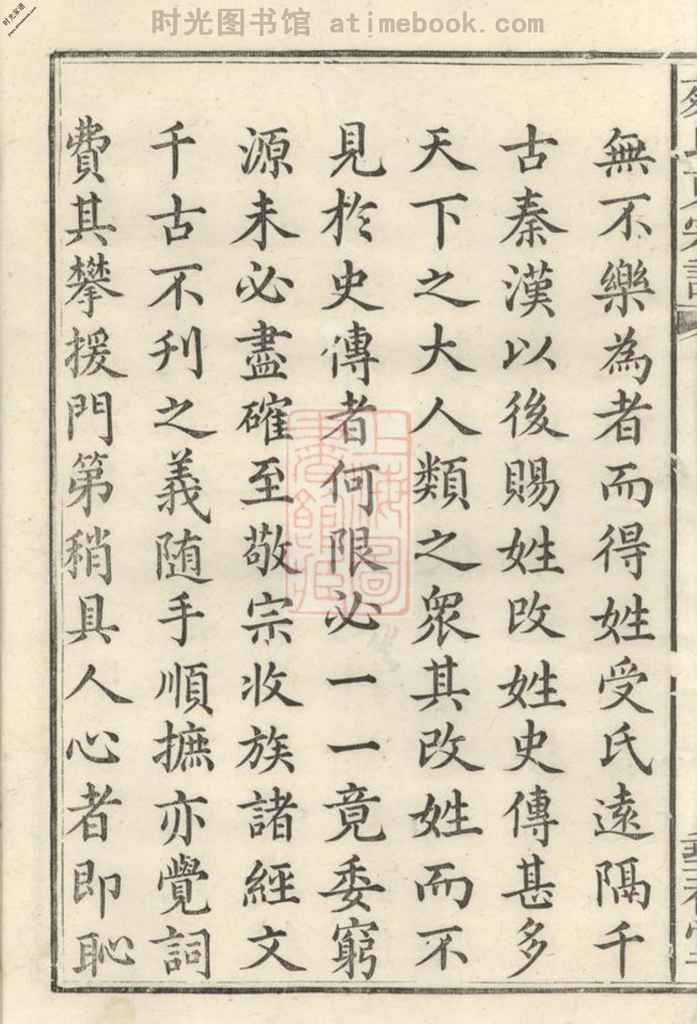 时光图书馆 - atimebook.com
無不樂為者而得姓受氏遠隔千
古秦漢以後賜姓改姓史傳甚多
天下之大人類之衆其改姓而不
見於史傳者何限必一一竟委窮
源未必盡確至敬宗收族諸經文
千古不刋之義随手順摭亦覺詞
費其攀援門第稍具人心者即恥